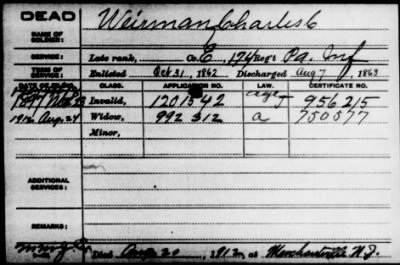 DEAD
Weirman, Charles C
NAME OF SOLDIER:
SERVICE: Late rank, Co. E, 174 Reg't Pa. Inf
TERM OF SERVICE: Enlisted Oct 31, 1862 Discharged Aug 7, 1863
DATE OF FILING. CLASS. APPLICATION NO. LAW. CERTIFICATE NO.
1897 Nov 23 Invalid, 1201542 956215
1912 Aug. 24 Widow, 992312 a 750577
Minor,
ADDITIONAL SERVICES:
REMARKS:
Died Aug 20, 1912, at Merchantville N.J.